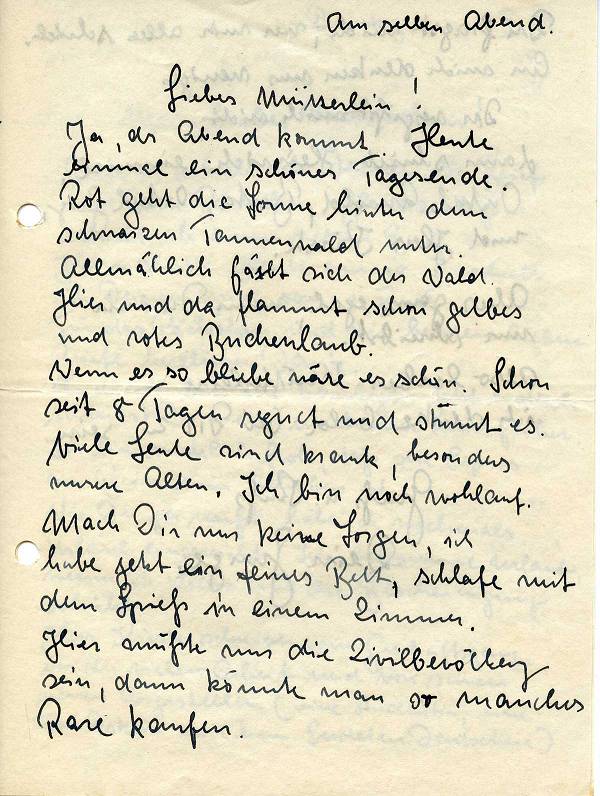 Am selben Abend.
Liebes Mütterlein!
Ja, der Abend kommt. Heute
einmal ein schönes Tagesende.
Rot geht die Sonne hinter dem
schwarzen Tannenwald unter.
Allmählich färbt sich der Wald.
Hier und da flammt schon gelbes
und rotes Buchenlaub.
Wenn es so bliebe wäre es schön. Schon
seit 8 Tagen regnet und stürmt es.
Viele Leute sind krank, besonders
unsere Alten. Ich bin noch wohlauf.
Mach Dir nur keine Sorgen, ich
habe jetzt ein feines Bett, schlafe mit
dem Spieß in einem Zimmer.
Hier müßte nur die Zivilbevölkerung
sein, dann könnte man so manches
Rare kaufen.